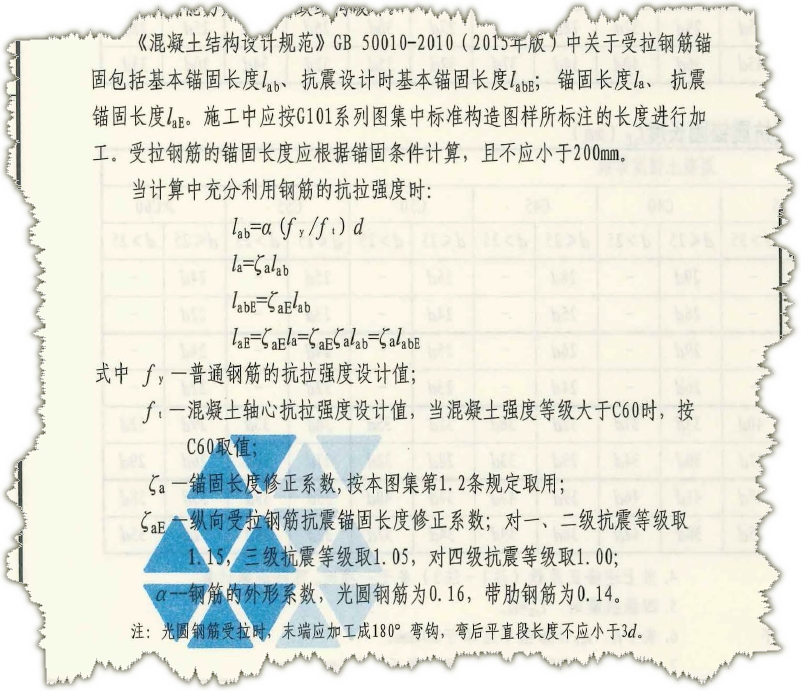 《混凝土结构设计规范》GB 50010-2010（2015年版）中关于受拉钢筋锚
固包括基本锚固长度lab、抗震设计时基本锚固长度labE；锚固长度la、抗震
锚固长度laE。施工中应按G101系列图集中标准构造图样所标注的长度进行加
工。受拉钢筋的锚固长度应根据锚固条件计算，且不应小于200mm。
当计算中充分利用钢筋的抗拉强度时:
lab=α(fy/ft)d
la=ζalab
labE=ζaElab
laE=ζaEla=ζaEζalab=ζalabE
式中 fy—普通钢筋的抗拉强度设计值;
ft—混凝土轴心抗拉强度设计值，当混凝土强度等级大于C60时，按
C60取值;
ζa—锚固长度修正系数,按本图集第1.2条规定取用;
ζaE—纵向受拉钢筋抗震锚固长度修正系数；对一、二级抗震等级取
1.15，三级抗震等级取1.05，对四级抗震等级取1.00;
α—钢筋的外形系数，光圆钢筋为0.16，带肋钢筋为0.14。
注: 光圆钢筋受拉时，末端应加工成180°弯钩，弯后平直段长度不应小于3d。